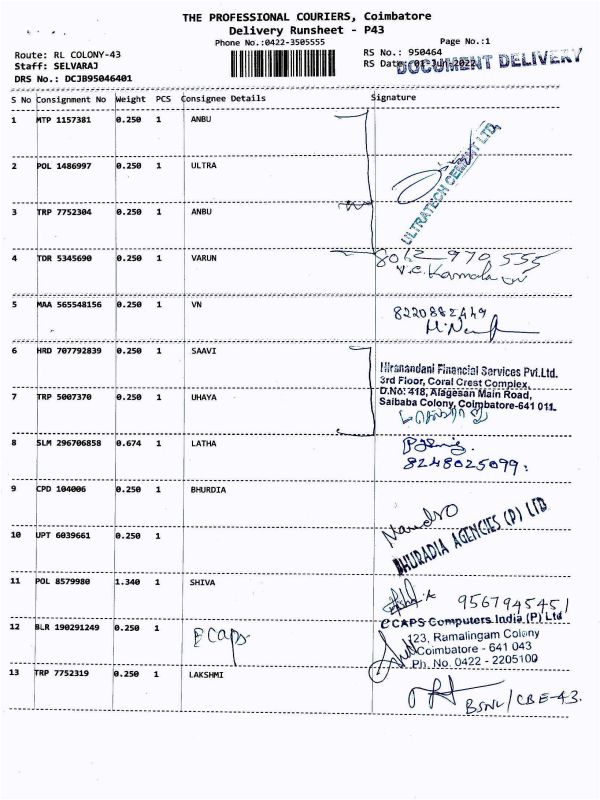 THE PROFESSIONAL COURIERS, Coimbatore
Delivery Runsheet - P43
Phone No.:0422-3505555
Page No.:1
Route: RL COLONY-43
RS No.: 950464
Staff: SELVARAJ
RS Date: 01 Jul 2022
DOCUMENT DELIVERY
DRS No.: DCJB95046401
S No Consignment No Weight PCS Consignee Details Signature
1 MTP 1157381 0.250 1 ANBU
2 POL 1486997 0.250 1 ULTRA
ULTRATECH CEMENT LTD.
3 TRP 7752304 0.250 1 ANBU
4 TDR 5345690 0.250 1 VARUN
8012 970 555
V.C. Kamala
5 MAA 565548156 0.250 1 VN
8220882449
6 HRD 707792839 0.250 1 SAAVI
Hiranandani Financial Services Pvt.Ltd.
3rd Floor, Coral Crest Complex,
7 TRP 5007370 0.250 1 UHAYA
D.No: 418, Alagesan Main Road,
Saibaba Colony, Coimbatore-641 011.
8 SLM 296706858 0.674 1 LATHA
8248025099
9 CPD 104006 0.250 1 BHURDIA
10 UPT 6039661 0.250 1
BHURADIA AGENCIES (P) LTD
11 POL 8579980 1.340 1 SHIVA
9567945451
12 BLR 190291249 0.250 1 Ecaps
ECAPS Computers India (P) Ltd
123, Ramalingam Colony
Coimbatore - 641 043
Ph. No. 0422 - 2205100
13 TRP 7752319 0.250 1 LAKSHMI
BSNL/CBE-43.